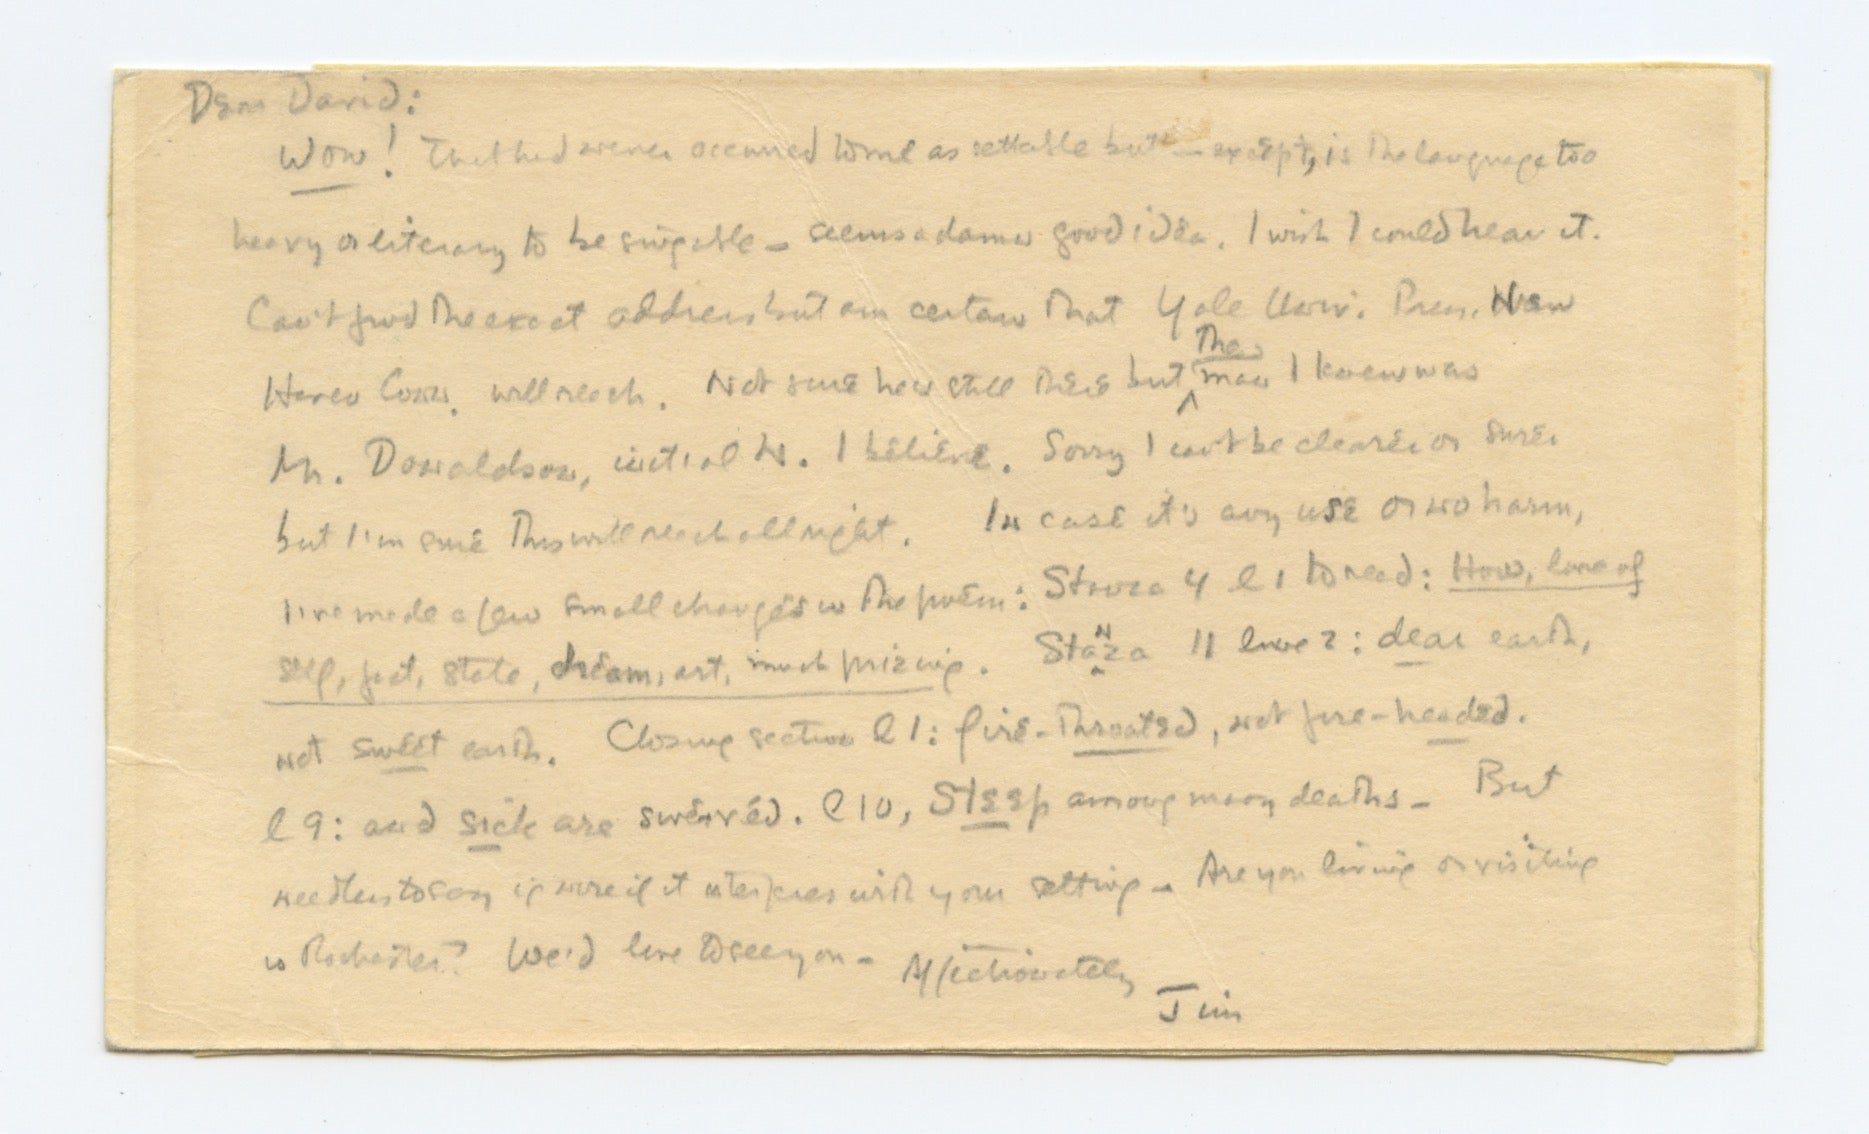 Dear David:
Wow! That had never occurred to me as settable but — except, is the language too
heavy or literary to be singable — seems a damn good idea. I wish I could hear it.
Can't find the exact address but am certain that Yale Univ. Press, New
Haven Conn. will reach. Not sure he's still there but the man I knew was
Mr. Donaldson, initial N. I believe. Sorry I can't be clearer or surer
but I'm sure this will reach all right. In case it's any use or no harm,
I've made a few small changes in the poem: Stanza 4 l 1 to read: How, love of
self, God, state, dream, art, much prizing. Stanza 11 line 2: dear earth,
not sweet earth. Closing section l 1: fire-throated, not fire-headed.
l 9: and sick are swerved. l 10, Steep among many deaths — But
needless to say ignore if it interferes with your setting — Are you living or visiting
in Rochester? We'd love to see you — Affectionately
Jim